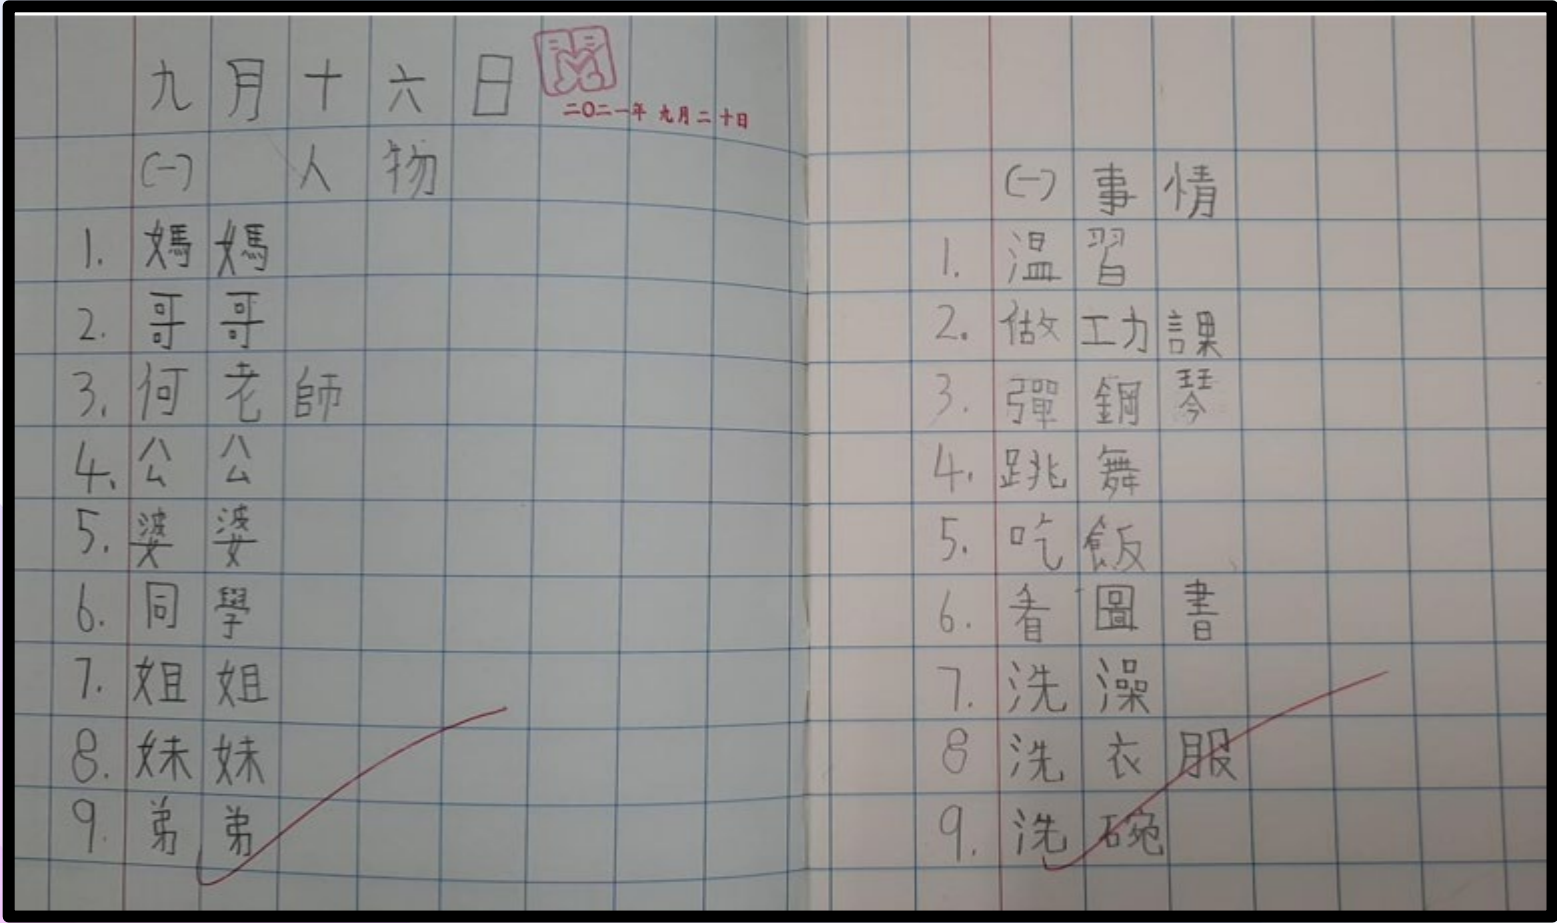 九月十六日
二〇二一年 九月二十日
(一) 人物
1. 媽媽
2. 哥哥
3. 何老師
4. 公公
5. 婆婆
6. 同學
7. 姐姐
8. 妹妹
9. 弟弟
(一) 事情
1. 溫習
2. 做功課
3. 彈鋼琴
4. 跳舞
5. 吃飯
6. 看圖書
7. 洗澡
8 洗衣服
9. 洗碗